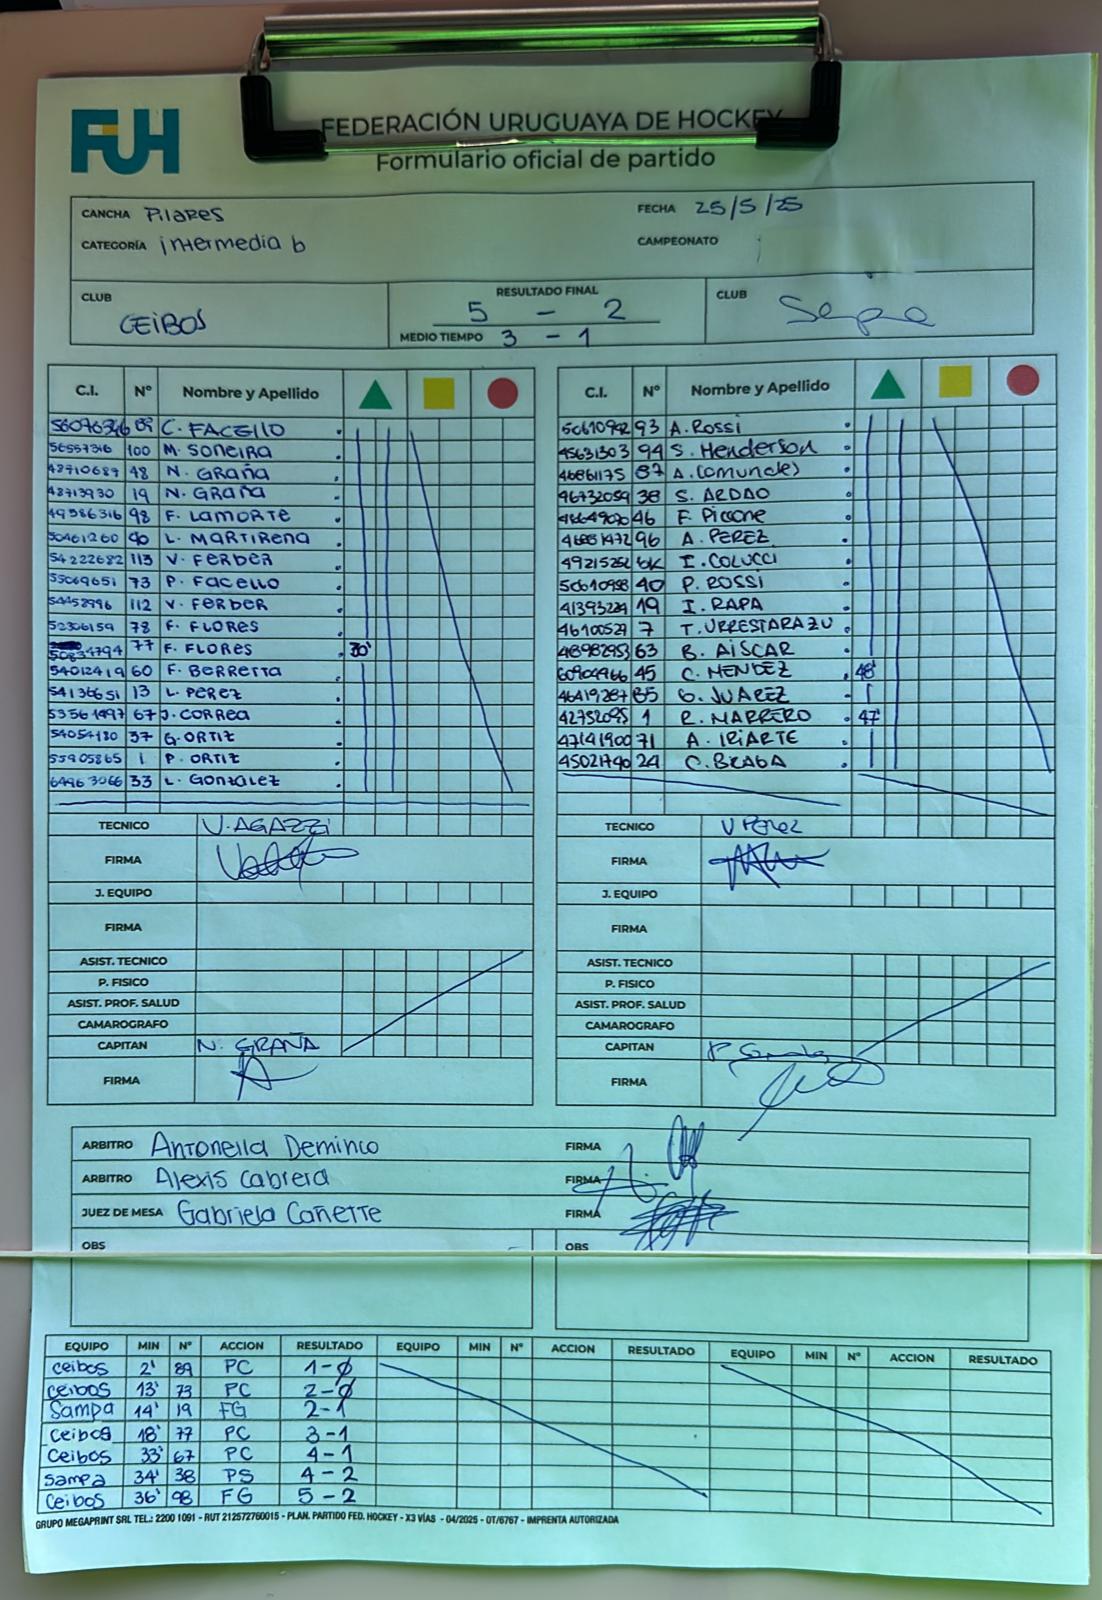 FUH
FEDERACIÓN URUGUAYA DE HOCKEY
Formulario oficial de partido
CANCHA Pilares FECHA 25/5/25
CATEGORÍA intermedia b CAMPEONATO
CLUB CEIBOS RESULTADO FINAL 5 - 2 CLUB
MEDIO TIEMPO 3 - 1
C.I. Nº Nombre y Apellido C.I. Nº Nombre y Apellido
89 C. FACELLO 93 A. Rossi
56557316 100 M. SONEIRA 45631303 94 S. Henderson
48710687 48 N. GRAÑA 46861175 87 A.
48713930 19 N. GRAÑA 46732059 38 S. ARDAO
49586316 98 F. LAMORTE 46 F. Piccone
50461260 90 L. MARTIRENA 46851472 96 A. PEREZ
54222682 113 V. FERBER 49215252 I. COLUCCI
55069651 73 P. FACELLO 50610958 40 P. ROSSI
54458996 112 V. FERBER 41393224 19 I. RAPA
52306159 78 F. FLORES 46100529 7 T. URRESTARAZU
77 F. FLORES 30' 48982953 63 B. AISCAR
54012419 60 F. BERRETTA 60904966 45 C. MENDEZ 48'
54136651 13 L. PEREZ 46419287 G. JUAREZ
53561497 67 J. CORREA 42752095 1 R. MARRERO 47'
54054180 37 G. ORTIZ 47141900 71 A. IRIARTE
55905865 1 P. ORTIZ 45021790 24 C. BRAGA
64963066 33 L. GONZALEZ
TECNICO V. AGAZZI TECNICO V PEREZ
FIRMA FIRMA
J. EQUIPO J. EQUIPO
FIRMA FIRMA
ASIST. TECNICO ASIST. TECNICO
P. FISICO P. FISICO
ASIST. PROF. SALUD ASIST. PROF. SALUD
CAMAROGRAFO CAMAROGRAFO
CAPITAN N. GRAÑA CAPITAN
FIRMA FIRMA
ARBITRO Antonella Deminco FIRMA
ARBITRO Alexis Cabrera FIRMA
JUEZ DE MESA Gabriela Cañette FIRMA
OBS OBS
EQUIPO MIN Nº ACCION RESULTADO EQUIPO MIN Nº ACCION RESULTADO EQUIPO MIN Nº ACCION RESULTADO
Ceibos 2' 89 PC 1-0
Ceibos 13' 73 PC 2-0
Sampa 14' 19 FG 2-1
Ceibos 18' 77 PC 3-1
Ceibos 33' 67 PC 4-1
Sampa 34' 38 PS 4-2
Ceibos 36' 98 FG 5-2
GRUPO MEGAPRINT SRL TEL.: 2200 1091 - RUT 212572760015 - PLAN. PARTIDO FED. HOCKEY - X3 VÍAS - 04/2025 - OT/6767 - IMPRENTA AUTORIZADA